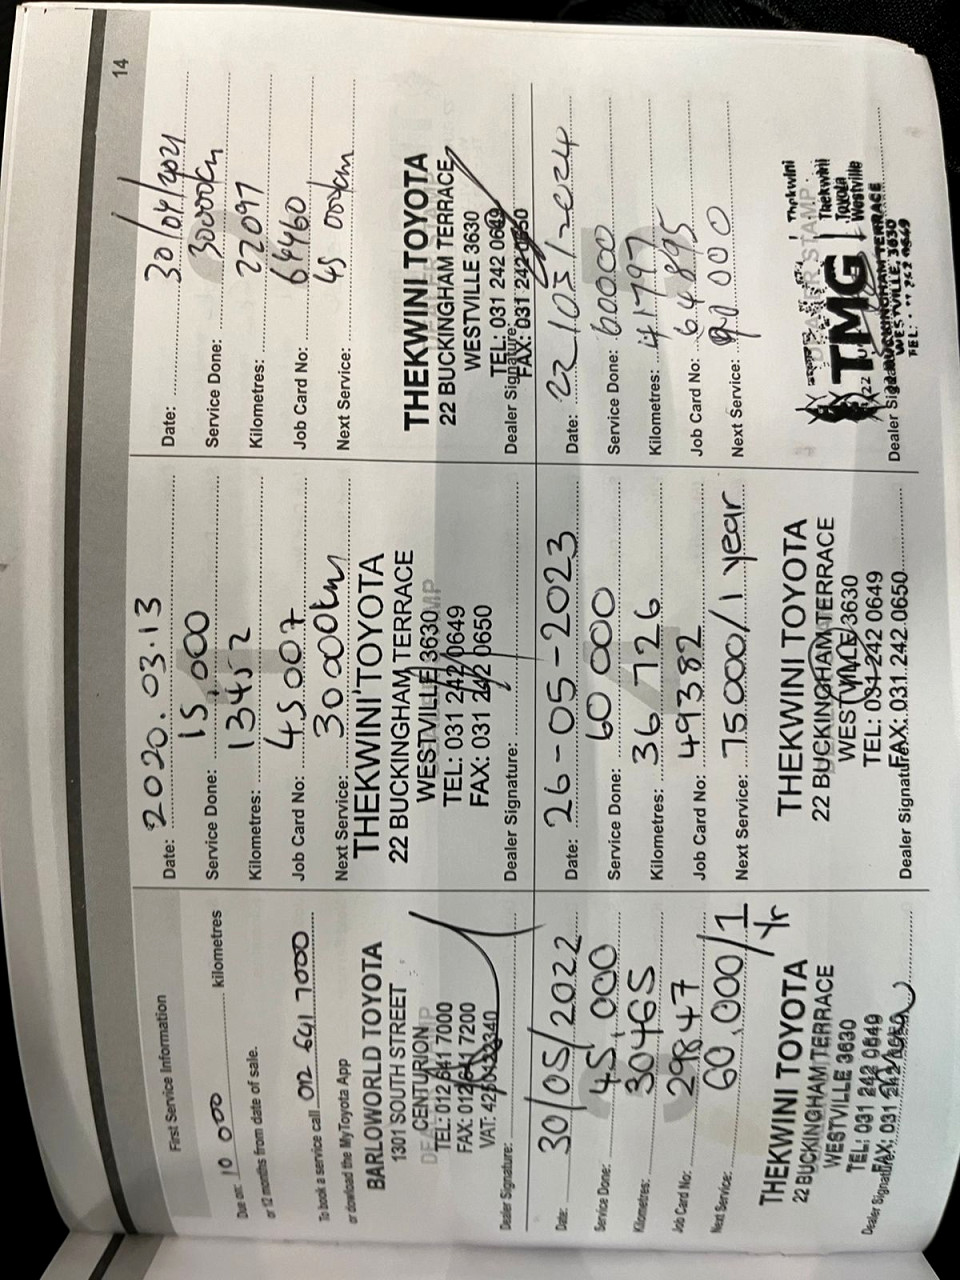 14
First Service Information
Due on: 10 000 kilometres
or 12 months from date of sale.
To book a service call 012 641 7000
or download the MyToyota App
BARLOWORLD TOYOTA
1301 SOUTH STREET
CENTURION
TEL: 012 641 7000
FAX: 012 641 7200
Dealer Signature:
Date: 2020.03.13
Service Done: 15,000
Kilometres: 13452
Job Card No: 45007
Next Service: 30000km
THEKWINI TOYOTA
22 BUCKINGHAM TERRACE
WESTVILLE 3630
TEL: 031 242 0649
FAX: 031 242 0650
Dealer Signature:
Date: 30/04/2021
Service Done: 30000km
Kilometres: 22097
Job Card No: 64460
Next Service: 45 000km
THEKWINI TOYOTA
22 BUCKINGHAM TERRACE
WESTVILLE 3630
TEL: 031 242 0649
FAX: 031 242 0650
Dealer Signature:
Date: 30/05/2022
Service Done: 45,000
Kilometres: 30465
Job Card No: 29847
Next Service: 60,000/1
Yr
THEKWINI TOYOTA
22 BUCKINGHAM TERRACE
WESTVILLE 3630
TEL: 031 242 0649
FAX: 031 242 0650
Dealer Signature:
Date: 26-05-2023
Service Done: 60 000
Kilometres: 36726
Job Card No: 49382
Next Service: 75000/1 year
THEKWINI TOYOTA
22 BUCKINGHAM TERRACE
WESTVILLE 3630
TEL: 031 242 0649
FAX: 031 242 0650
Dealer Signature:
Date: 22/05/2024
Service Done: 60000
Kilometres: 41797
Job Card No: 64895
Next Service: 90 000
DEALER STAMP
TMG
Thekwini
Toyota
Westville
22 BUCKINGHAM TERRACE
WESTVILLE, 3630
TEL:
Dealer Signature: